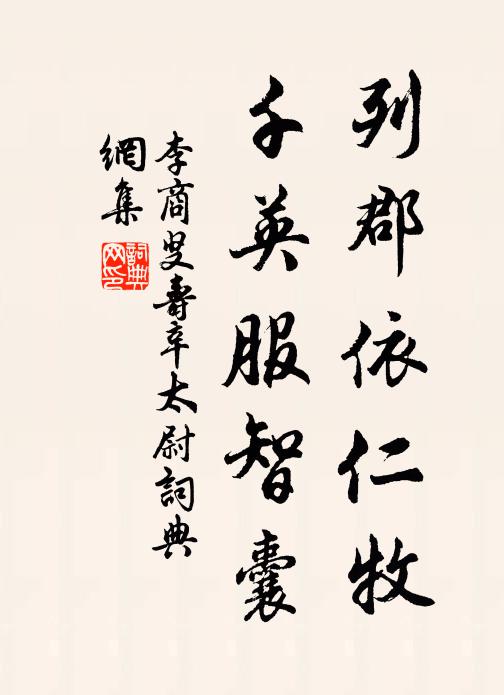 列郡依仁牧
千英服智囊
李商叟壽辛太尉詞典
網集
詞典網印